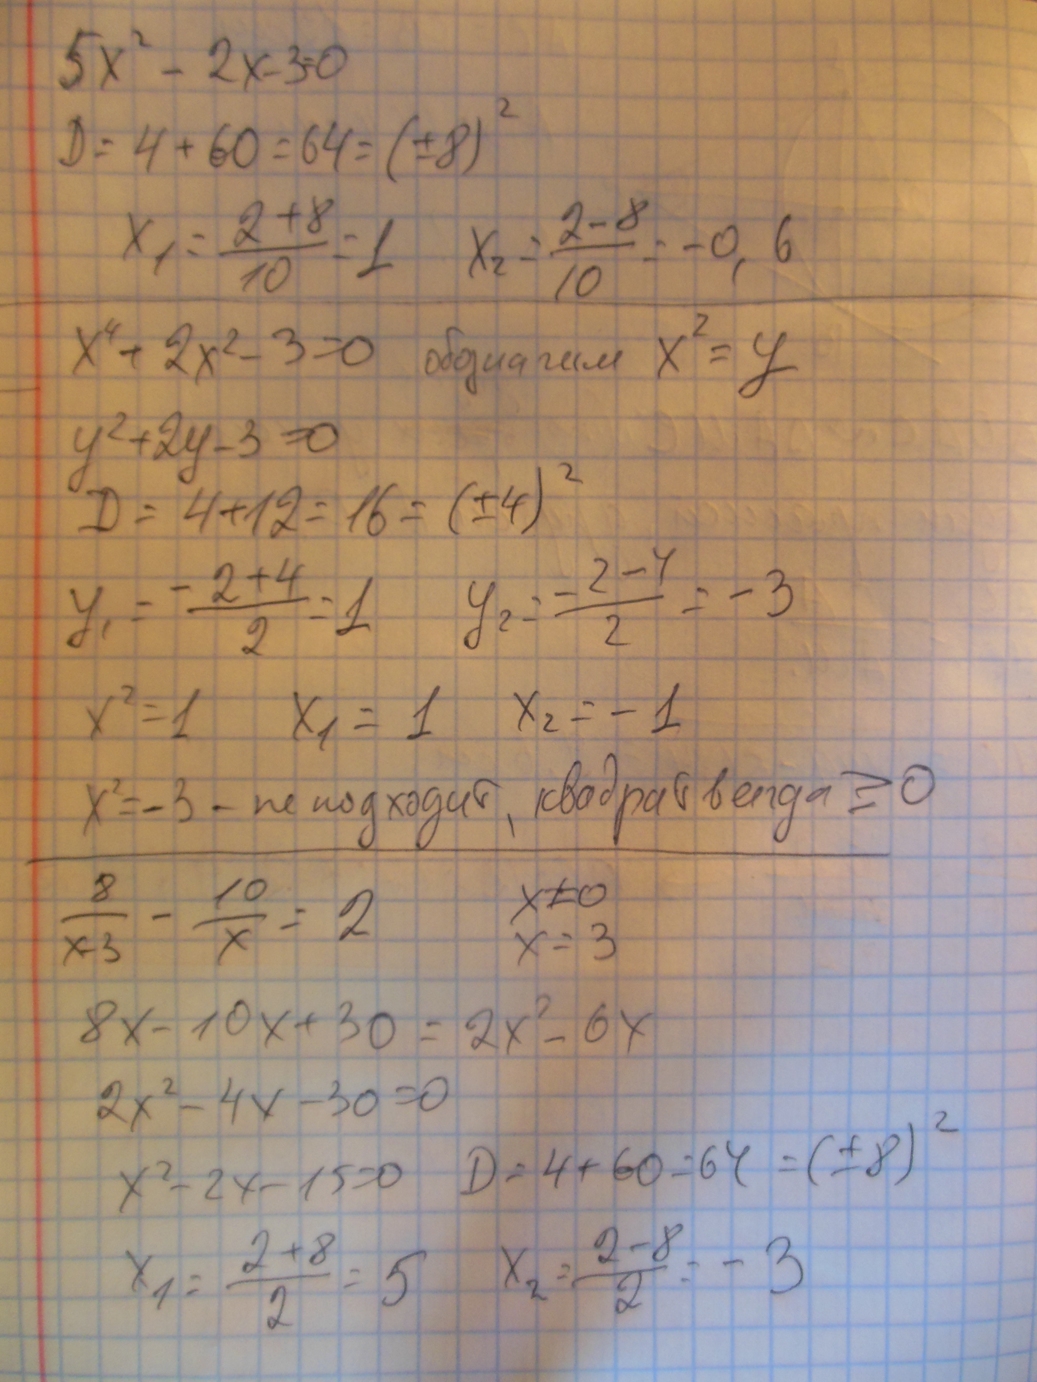 5x² - 2x-3=0
D = 4 + 60 = 64 = (±8)²
x₁ = (2+8)/10 = 1 x₂ = (2-8)/10 = -0,6
x⁴ + 2x² - 3 = 0 обозначим x² = y
y² + 2y - 3 = 0
D = 4+12 = 16 = (±4)²
y₁ = (-2+4)/2 = 1 y₂ = (-2-4)/2 = -3
x² = 1 x₁ = 1 x₂ = -1
x² = -3 - не подходит, квадрат всегда ≥ 0
8/(x-3) - 10/x = 2 x≠0
x = 3
8x - 10x + 30 = 2x² - 6x
2x² - 4x - 30 = 0
x² - 2x - 15 = 0 D = 4 + 60 = 64 = (±8)²
x₁ = (2+8)/2 = 5 x₂ = (2-8)/2 = -3